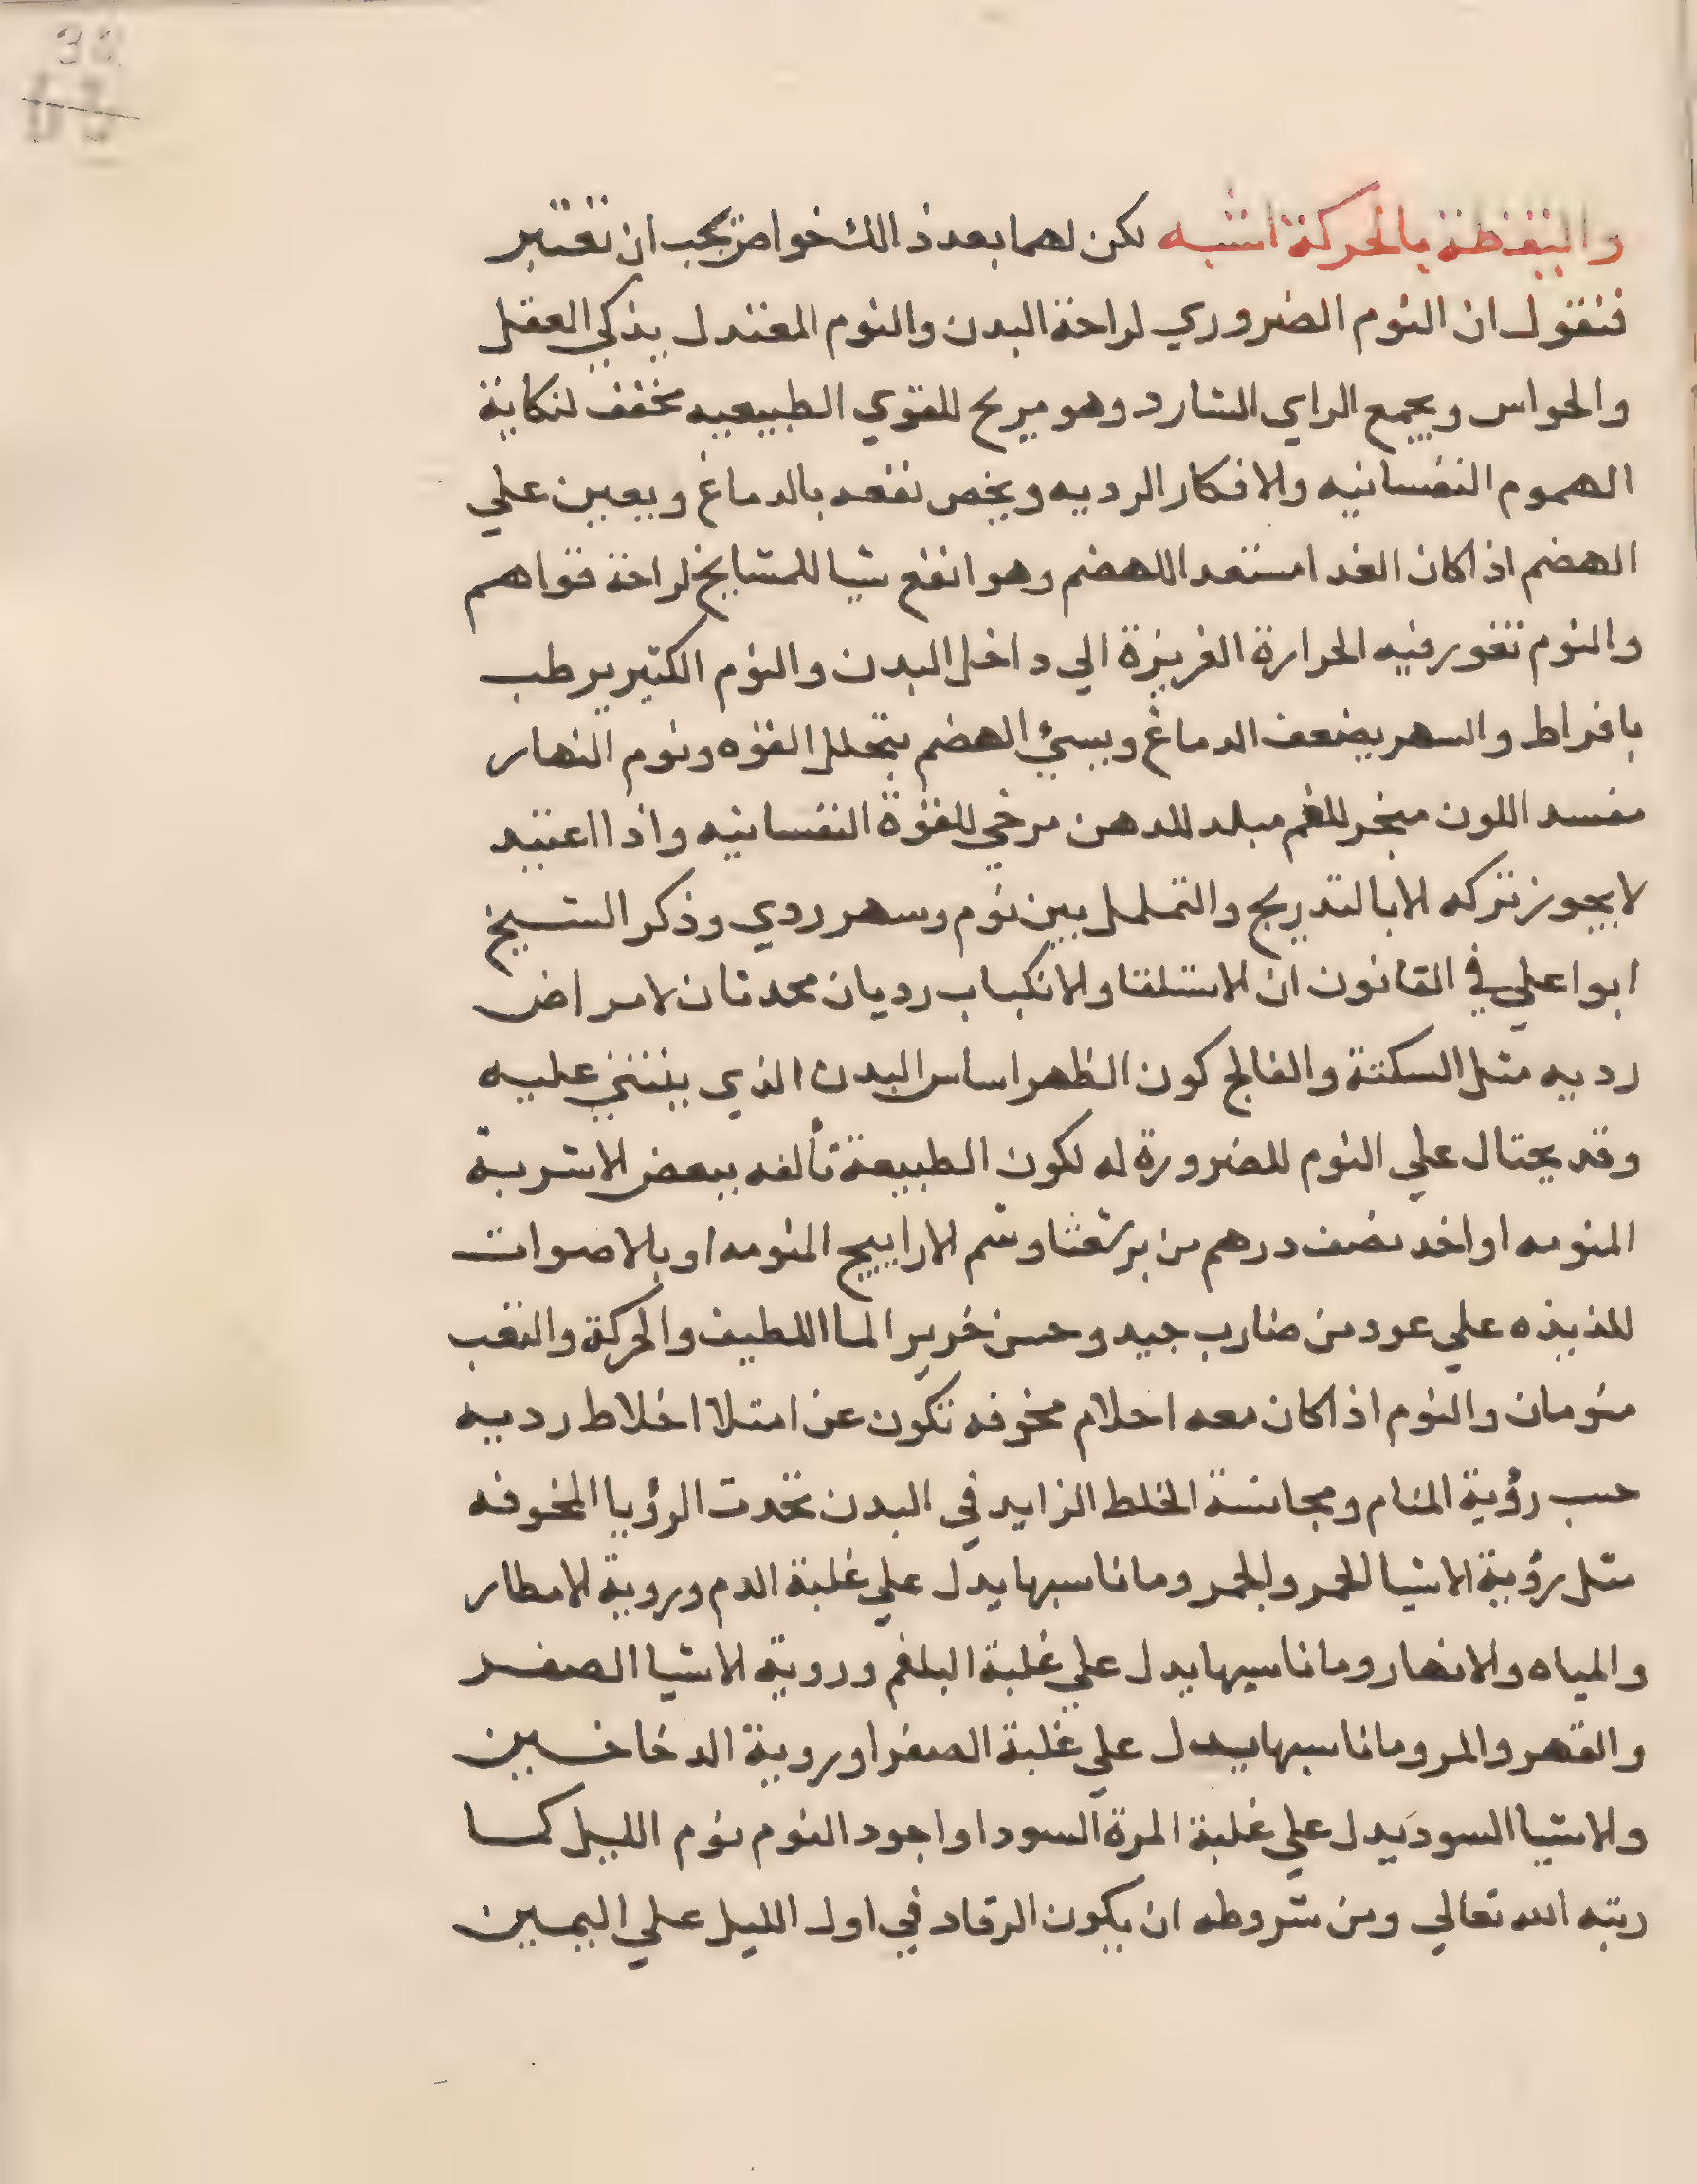 واليقظة بالحركة اشبه لكن لهما بعد ذالك خواص يجب ان تعتبر
فنقول ان النوم الضروري لراحة البدن والنوم المعتدل يذكي العقل
والحواس ويجمع الراي الشارد وهو مريح للقوي الطبيعيه مخفف لنكاية
الهموم النفسانيه والافكار الرديه ويخص نفعه بالدماغ ويعين علي
الهضم اذا كان الغدا مستعدا للهضم وهو انفع شيا للمشايخ لراحة قواهم
والنوم تغور فيه الحرارة الغريزة الي داخل البدن والنوم الكتير يرطب
بافراط والسهر يضعف الدماغ ويسيئ الهضم بتحلل القوه ونوم النهار
مفسد اللون مبخر للفم مبلد للدهن مرخي للقوة النفسانيه واذا اعتيد
لا يجوز تركه الا بالتدريج والتململ بين نوم وسهر ردي وذكر الشيخ
ابوا علي في القانون ان الاستلقا والانكباب رديان محدثان لامراض
رديه مثل السكتة والفالج كون الظهر اساس البدن الذي ينبني عليه
وقد يحتال علي النوم للضرورة له لكون الطبيعة تألفه ببعض الاشربة
المنومه او اخد نصف درهم من برشعثا وشم الاراييح المنومه او بالاصوات
للذيذه علي عود من ضارب جيد وحسن خرير الما اللطيف والحركة والتعب
منومان والنوم اذا كان معه احلام مخوفه تكون عن امتلا اخلاط رديه
حسب رؤية المنام ومجانسة الخلط الزايد في البدن تحدت الرؤيا المخوفه
مثل رؤية الاشيا الحمر والجمر وما ناسبها يدل علي غلبة الدم وروية الامطار
والمياه والانهار وما ناسبها يدل علي غلبة البلغم وروية الاشيا الصفر
والقهر والمر وما ناسبها يدل علي غلبة الصفرا وروية الدخاخين
والاشيا السود يدل علي غلبة المرة السودا واجود النوم نوم الليل كما
رتبه الله تعالي ومن شروطه ان يكون الرقاد في اول الليل علي اليمين